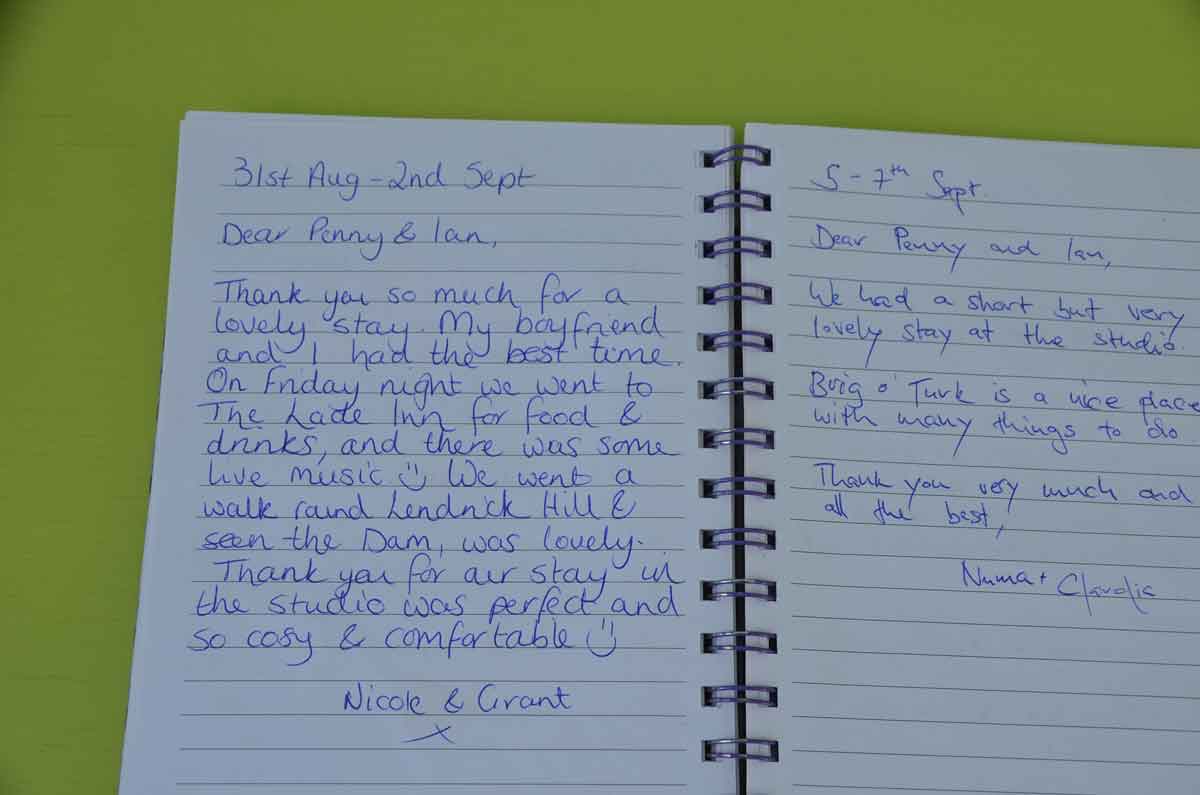 31st Aug - 2nd Sept
Dear Penny & Ian,
Thank you so much for a
lovely stay. My boyfriend
and I had the best time.
On Friday night we went to
The Lade Inn for food &
drinks, and there was some
live music :) We went a
walk round Lendrick Hill &
seen the Dam, was lovely.
Thank you for our stay in
the studio was perfect and
so cosy & comfortable :)
Nicole & Grant
x
5 - 7th Sept.
Dear Penny and Ian,
We had a short but very
lovely stay at the studio.
Brig o' Turk is a nice place
with many things to do
Thank you very much and
all the best,
Numa +